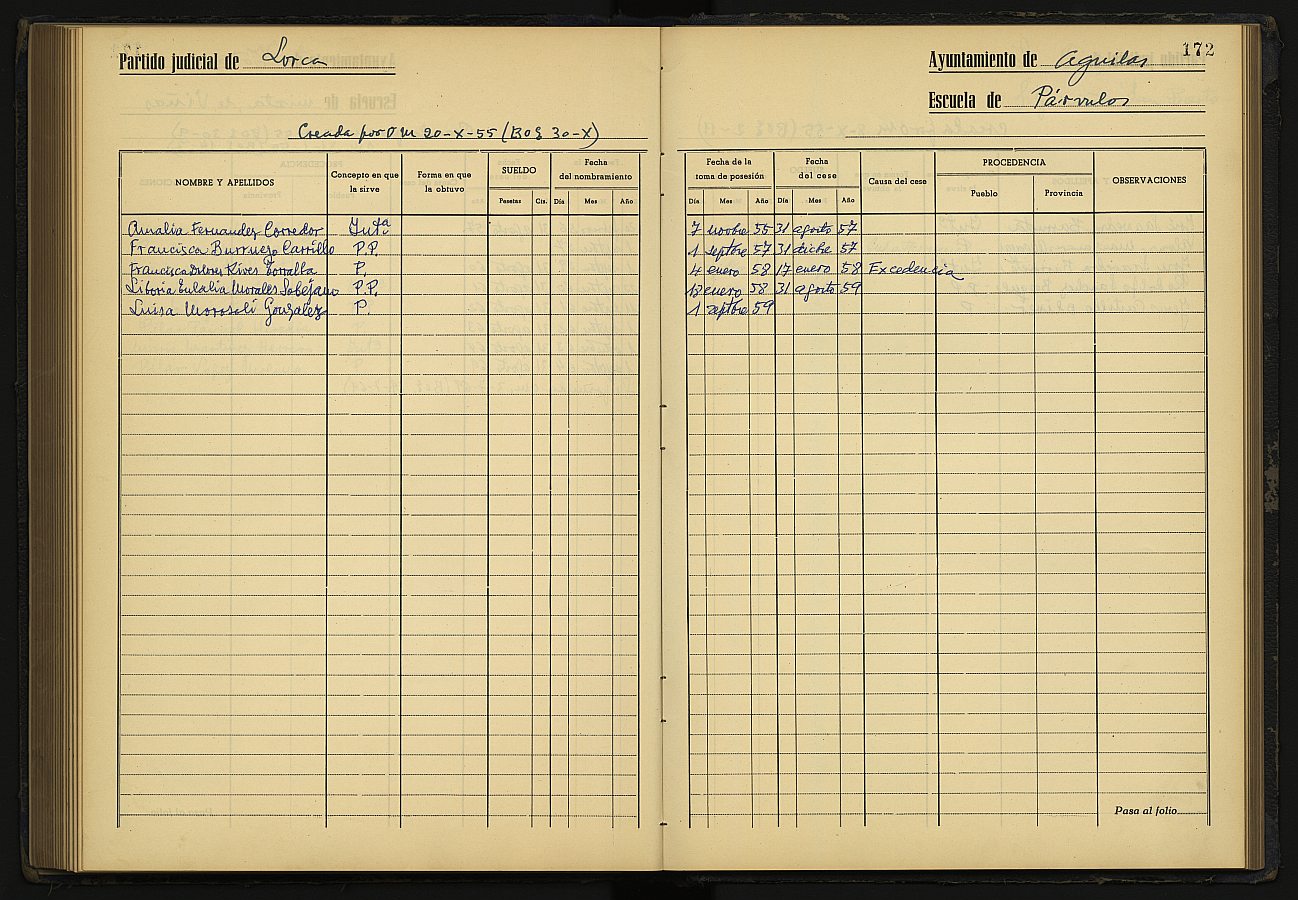 Partido judicial de Lorca
Creada por O M 20-X-55 (BOE 30-X)
NOMBRE Y APELLIDOS
Concepto en que la sirve
Forma en que la obtuvo
SUELDO
Pesetas Cts.
Fecha del nombramiento
Día Mes Año
172
Ayuntamiento de Aguilas
Escuela de Párvulos
Fecha de la toma de posesión
Día Mes Año
Fecha del cese
Día Mes Año
Causa del cese
PROCEDENCIA
Pueblo Provincia
OBSERVACIONES
Amalia Fernandez Corredor Intª 7 novbre 55 31 agosto 57
Francisca Burruezo Carrillo P.P. 1 septbre 57 31 dicbre 57
Francisca Dolores Rives Torralba P. 4 enero 58 17 enero 58 Excedencia
Liboria Eulalia Morales Sobejano P.P. 18 enero 58 31 agosto 59
Luisa Morosoli Gonzalez P. 1 septbre 59
Pasa al folio